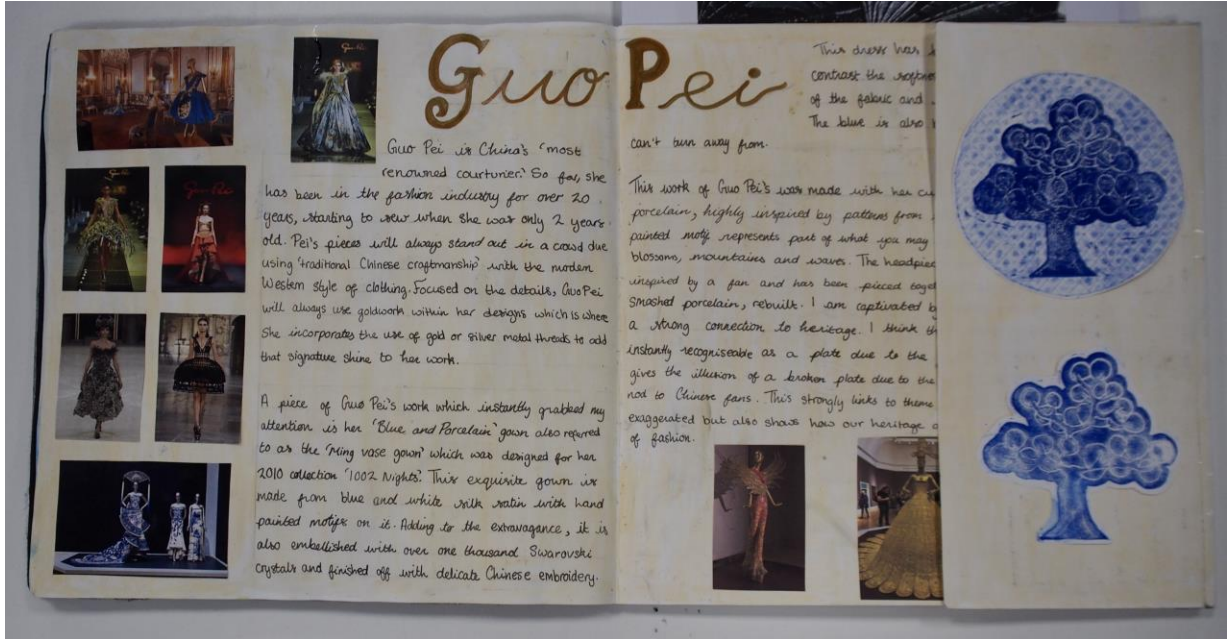 Guo Pei
Guo Pei is China's 'most
renowned courturier.' So far, she
has been in the fashion industry for over 20
years, starting to sew when she was only 2 years
old. Pei's pieces will always stand out in a crowd due
using 'traditional Chinese craftmanship' with the modern
Western style of clothing. Focused on the details, Guo Pei
will always use goldwork within her designs which is where
she incorporates the use of gold or silver metal threads to add
that signature shine to her work.
A piece of Guo Pei's work which instantly grabbed my
attention is her 'Blue and Porcelain' gown also referred
to as the 'Ming vase gown' which was designed for her
2010 collection '1002 Nights.' This exquisite gown is
made from blue and white silk satin with hand
painted motifs on it. Adding to the extravagance, it is
also embellished with over one thousand Swarovski
crystals and finished off with delicate Chinese embroidery.
This dress has
contrast the
of the fabric and
The blue is also
can't turn away from.
This work of Guo Pei's was made with her
porcelain, highly inspired by patterns from
painted motif represents part of what you may
blossoms, mountains and waves. The
inspired by a fan and has been pieced
smashed porcelain, rebuilt. I am captivated
a strong connection to heritage. I think
instantly recogniseable as a plate due to the
gives the illusion of a broken plate due to the
nod to Chinese fans. This strongly links to theme
exaggerated but also shows how our heritage
of fashion.
Guo Pei
Guo Pei